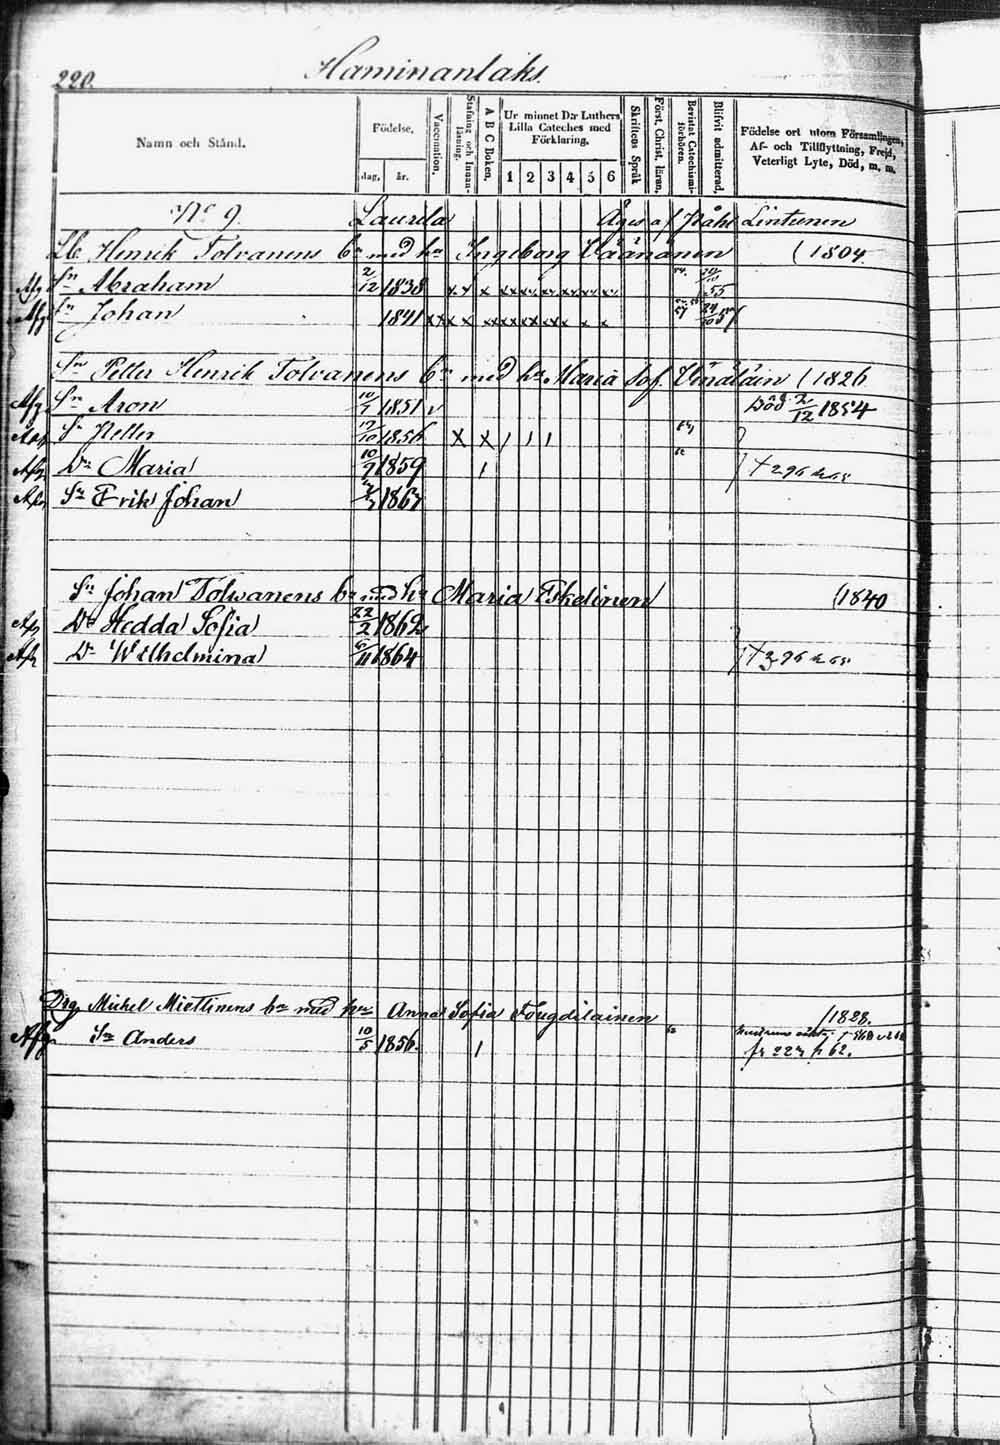 220.
Haminanlaks.
Namn och Stånd.
Födelse,
dag, år.
Vaccination.
Stafning och Innanläsning.
A B C Boken.
Ur minnet D:r Luthers Lilla Cateches med Förklaring,
1 2 3 4 5 6
Skriftens Språk
Först. Christ. läran.
Bevistat Catechismiförhören.
Blifvit admitterad.
Födelse ort utom Församlingen, Af- och Tillflyttning, Frejd, Veterligt Lyte, Död, m. m.
No 9. Laurila Äges af Påhl Lintunen
Henrik Tolvanens med Ingeborg Väänänen (1804
Sn Abraham 2/12 1838 x x x x x x x x x 55
Sn Johan 1841 x x x x x x x x x x x
Sn Petter Henrik Tolvanens med Maria Sof. Venäläin (1826
Sn Aron 10/7 1851 Död 2/12 1854
Sn Petter 1856 x x 1 1 1
Dr Maria 10/9 1859 1
Sn Erik Johan 1867
Sn Johan Tolvanens med Maria Eskelinen (1840
Dr Hedda Sofia 22/2 1862
Dr Wilhelmina 11 1864
Michel Miettinens med Anna Sofia Fougdilainen /1828.
Sn Anders 10/5 1856. 1 62.